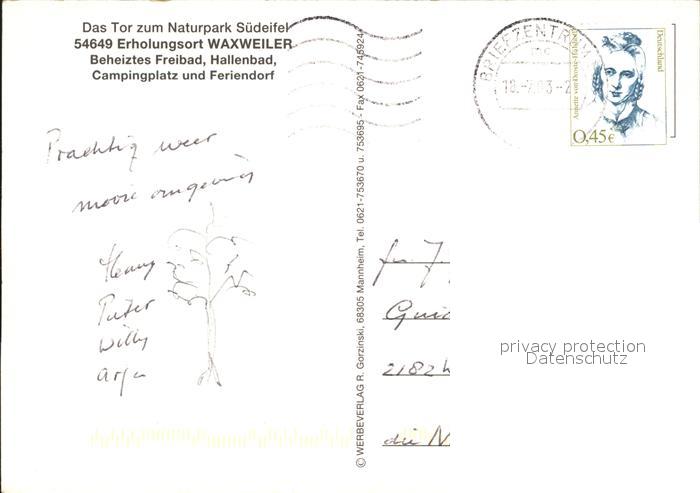 Das Tor zum Naturpark Südeifel
54649 Erholungsort WAXWEILER
Beheiztes Freibad, Hallenbad,
Campingplatz und Feriendorf
Prachtig weer
mooie omgeving
Henny
Pieter
Willy
Arjen
© WERBEVERLAG R. Gorzinski, 68305 Mannheim, Tel. 0621-753670 u. 753695 - Fax 0621-745924
BRIEFZENTRUM
18.-7.03-2
Deutschland
Annette von Droste-
0,45€
fam. J.
2182
die N
privacy protection
Datenschutz